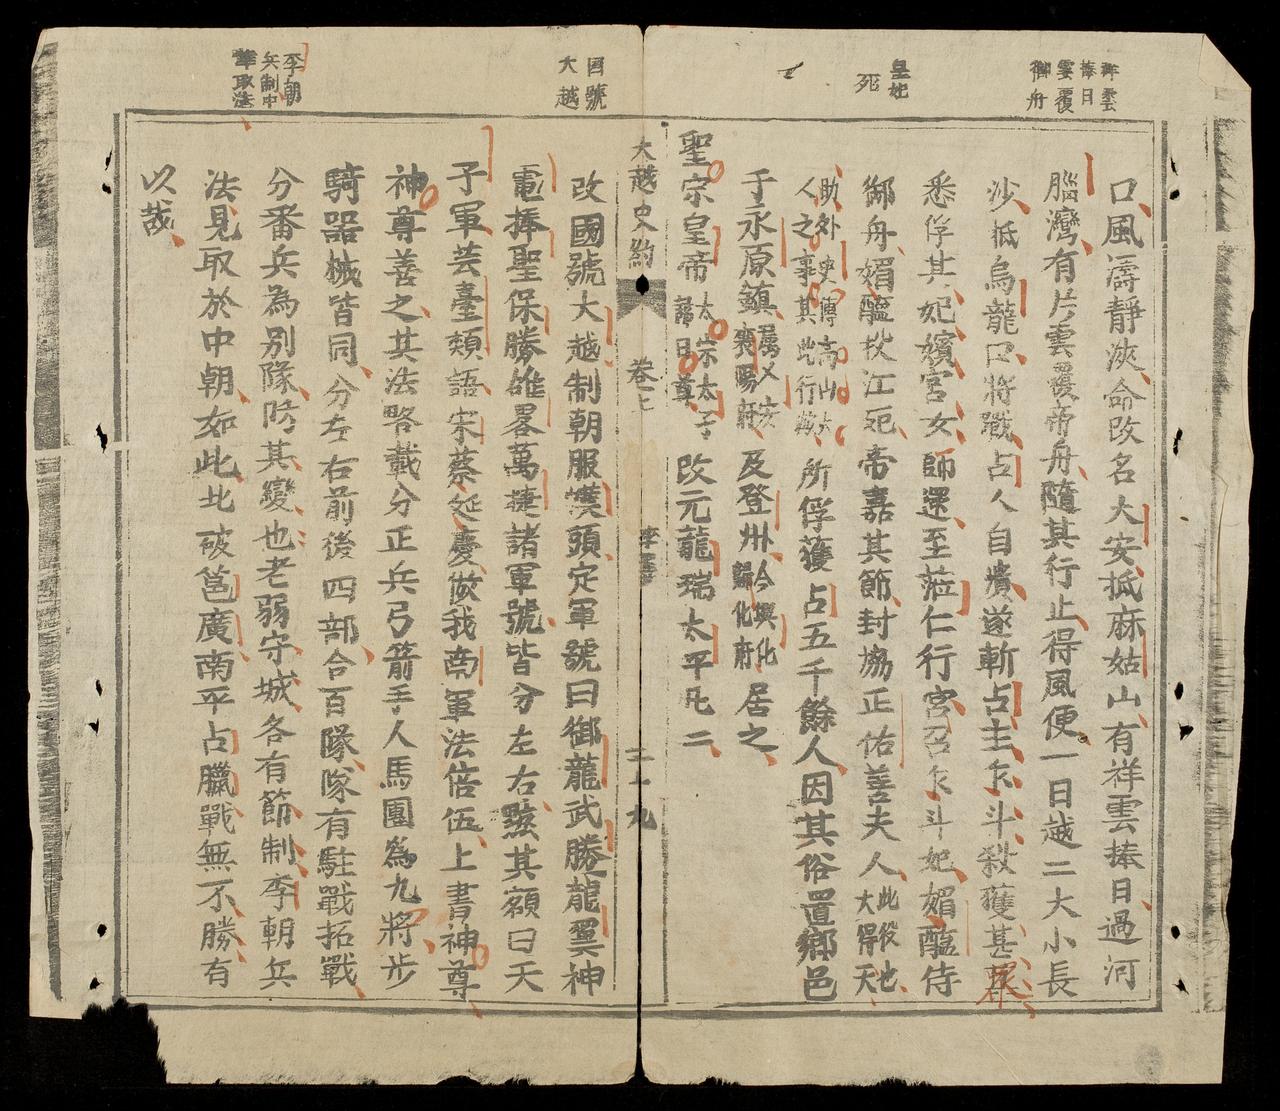 祥雲
捧日
雲覆
御舟
皇妃
死
國號
大越
李朝
兵制中
華取法
口風濤靜浹命改名大安抵麻姑山有祥雲捧日過河
腦灣有片雲覆帝舟隨其行止得風便一日越二大小長
沙抵烏龍口將戰占人自潰遂斬占主乍斗殺獲甚眾
悉俘其妃嬪宮女師還至蒞仁行宮召乍斗妃媚醯侍
御舟媚醯投江死帝嘉其節封協正佑善夫人此役也大得天
助外史傳高山大人之事其此行歟所俘獲占五千餘人因其俗置鄉邑
于永原鎮屬乂安襄陽府及登州今興化歸化府居之
聖宗皇帝太宗太子諱日尊改元龍瑞太平凡二
大越史約
卷二
李
二十九
改國號大越制朝服幞頭定軍號曰御龍武勝龍翼神
電捧聖保勝雄畧萬捷諸軍號皆分左右黥其額曰天
子軍芸臺類語宋蔡延慶倣我南軍法倍伍上書神尊
神尊善之其法畧載分正兵弓箭手人馬團為九將步
騎器械皆同分左右前後四部合百隊隊有駐戰拓戰
分番兵為別隊防其變也老弱守城各有節制李朝兵
法見取於中朝如此北破邕廣南平占臘戰無不勝有
以哉